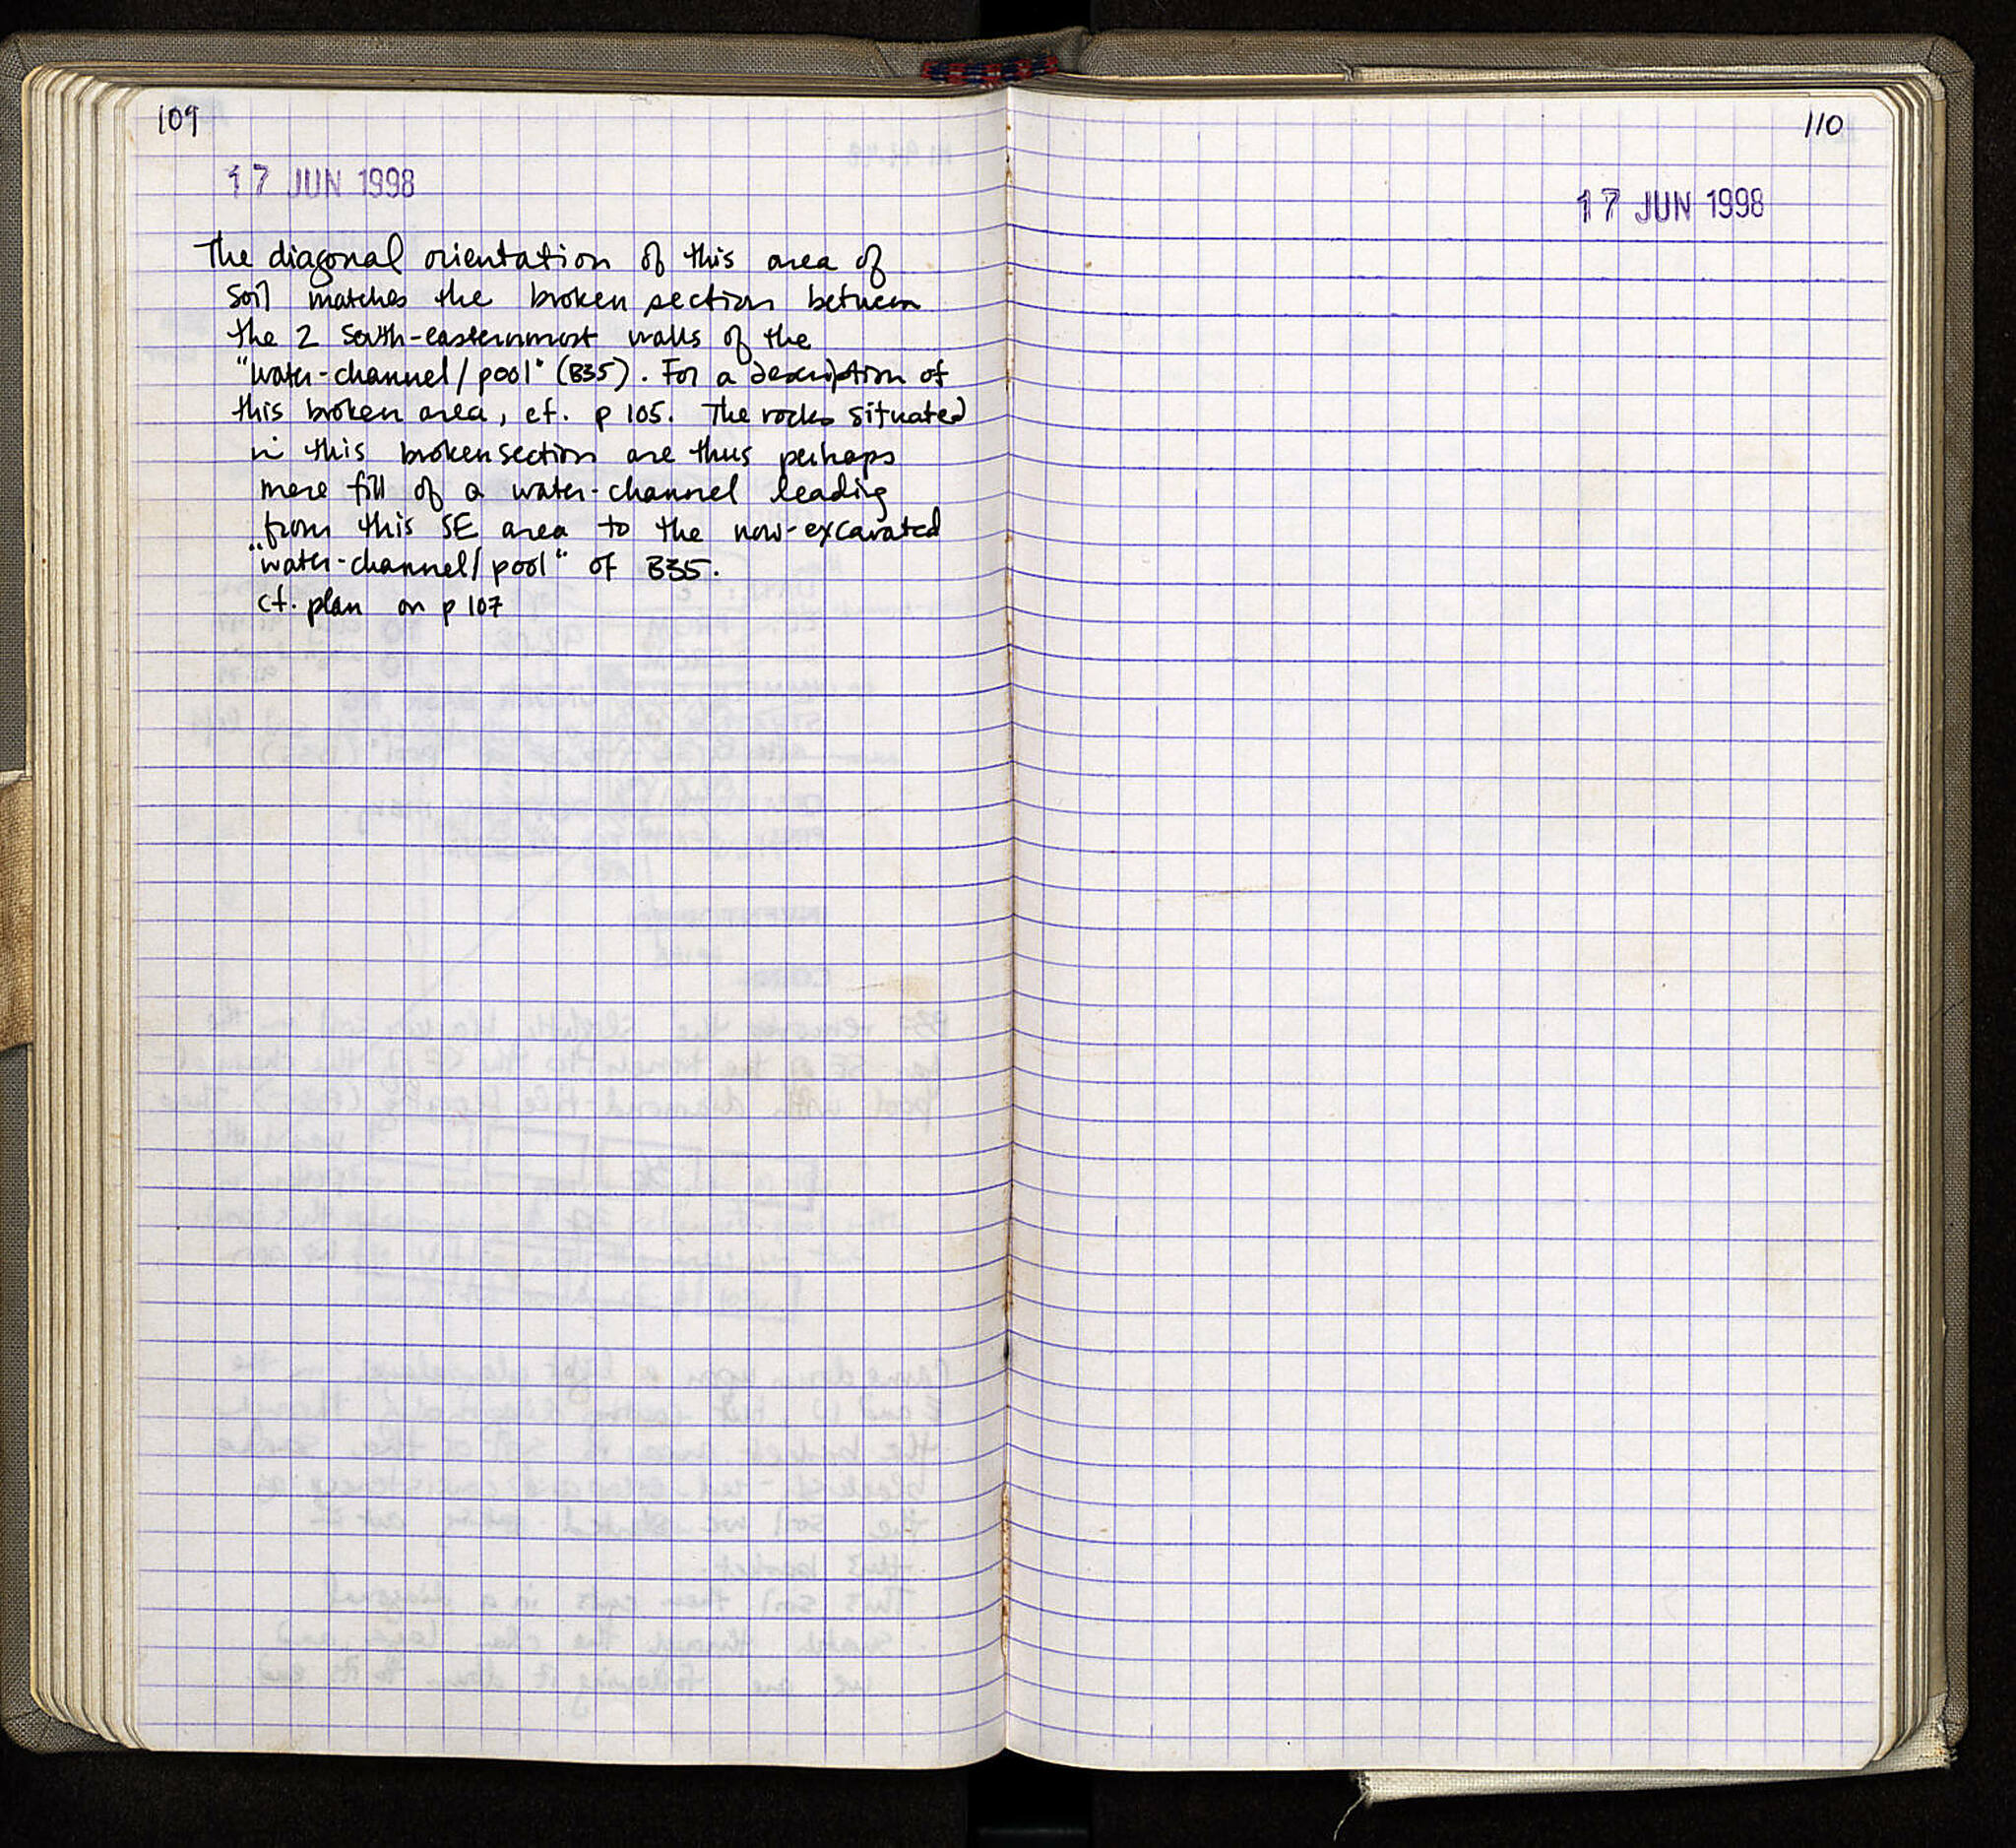 109
17 JUN 1998
The diagonal orientation of this area of
soil matches the broken section between
the 2 South-easternmost walls of the
"water-channel/pool" (B35). For a description of
this broken area, cf. p 105. The rocks situated
in this broken section are thus perhaps
mere fill of a water-channel leading
from this SE area to the now-excavated
"water-channel/pool" of B35.
cf. plan on p 107
110
17 JUN 1998